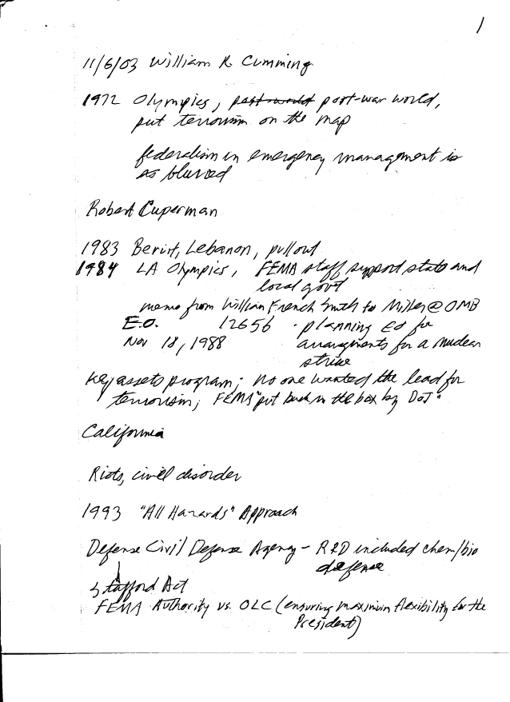 1
11/6/03 William R Cumming
1972 Olympics, post-world post-war world,
put terrorism on the map
federalism in emergency management is
so blurred
Robert Cuperman
1983 Beruit, Lebanon, pullout
1984 LA Olympics, FEMA staff support state and
local govt
memo from William French Smith to Miller@OMB
E.O. 12656 - planning EO for
Nov 18, 1988 arrangements for a nuclear
strike
Key assets program; no one wanted the lead for
terrorism; FEMA "put back in the box by DoJ"
California
Riots, civil disorder
1993 "All Hazards" Approach
Defense Civil Defense Agency - R&D included chem/bio
defense
Stafford Act
FEMA Authority vs. OLC (ensuring maximum flexibility for the
President)